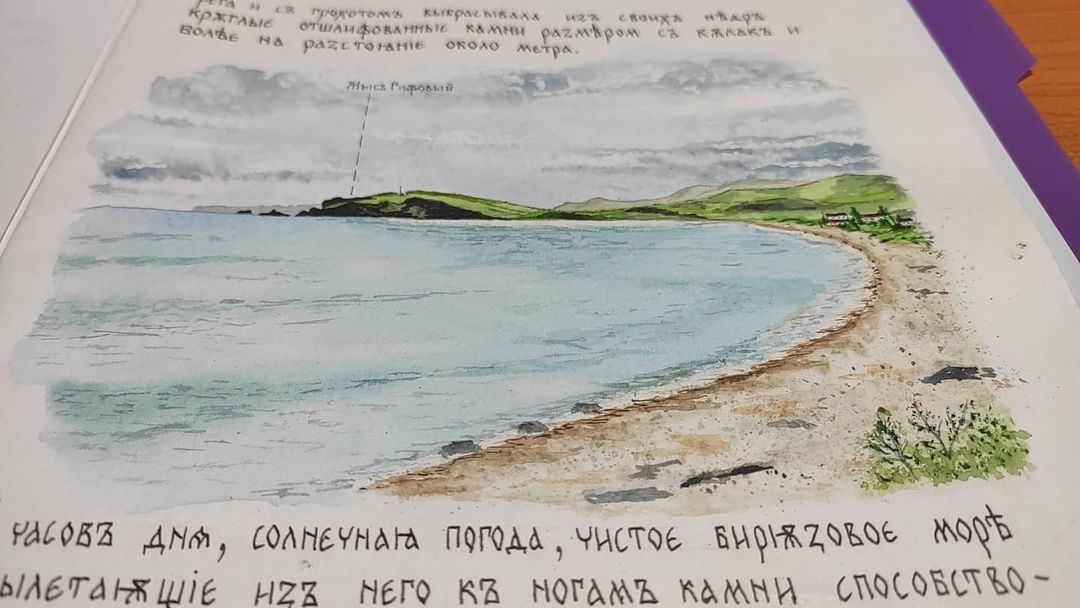 рега и съ грохотомъ выбрасывала изъ своихъ нѣдръ
крѫглые отшлифованные камни размѣромъ съ кѫлакъ и
болѣе на разстоꙗніе около метра.
Мысъ Рифовый
часовъ днѧ, солнечнаꙗ погода, чистое бирѭзовое морѣ
ылетаѭщіе изъ него къ ногамъ камни способство-